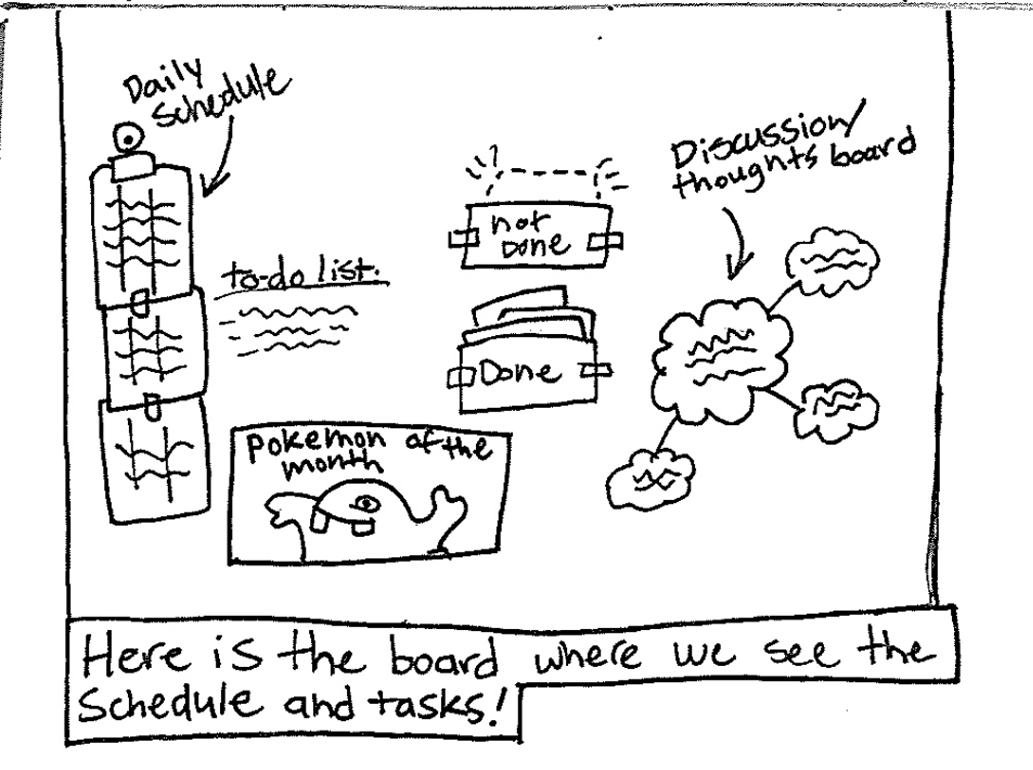 Daily
Schedule
to-do list:
not
Done
Done
Discussion/
thoughts board
pokemon of the
month
Here is the board where we see the
Schedule and tasks!